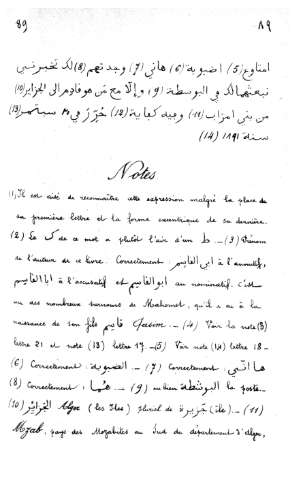 89 ٨٩
امتاوع (5) اضبوية (6) هاني (7) وجدتهم (8) لك تخبرنى
نبعثهالك في البوسطة (9) وإلّا مع من هو قادم الى الجزاير (10)
من بني امزاب (11) وفيه كفاية (12) حُرّر في ٣ سبتمبر (13)
سنة ١٨٩١ (14)
Notes
(1) Il est aisé de reconnaître cette expression malgré la place de
sa première lettre et la forme excentrique de sa dernière.
(2) Le ك de ce mot a plutôt l'air d'un ط — (3) Prénom
de l'auteur de ce livre. Correctement أبي القاسم à l'annexatif,
أبا القاسم à l'accusatif et أبو القاسم au nominatif. C'est
un des nombreux surnoms de Mahomet, qu'il a eu à la
naissance de son fils قاسم Qasim. — (4) Voir la note (3)
lettre 21 et note (13) lettre 17. — (5) Voir note (14) lettre 18 —
(6) Correctement: الضبوية — (7) Correctement: ها انى
(8) Correctement: هُما — (9) au lieu البوشطة la poste —
(10) الجزائر Alger (les Iles) pluriel de جزيرة (île). — (11)
Mzab, pays des Mozabites au Sud du département d'Alger,